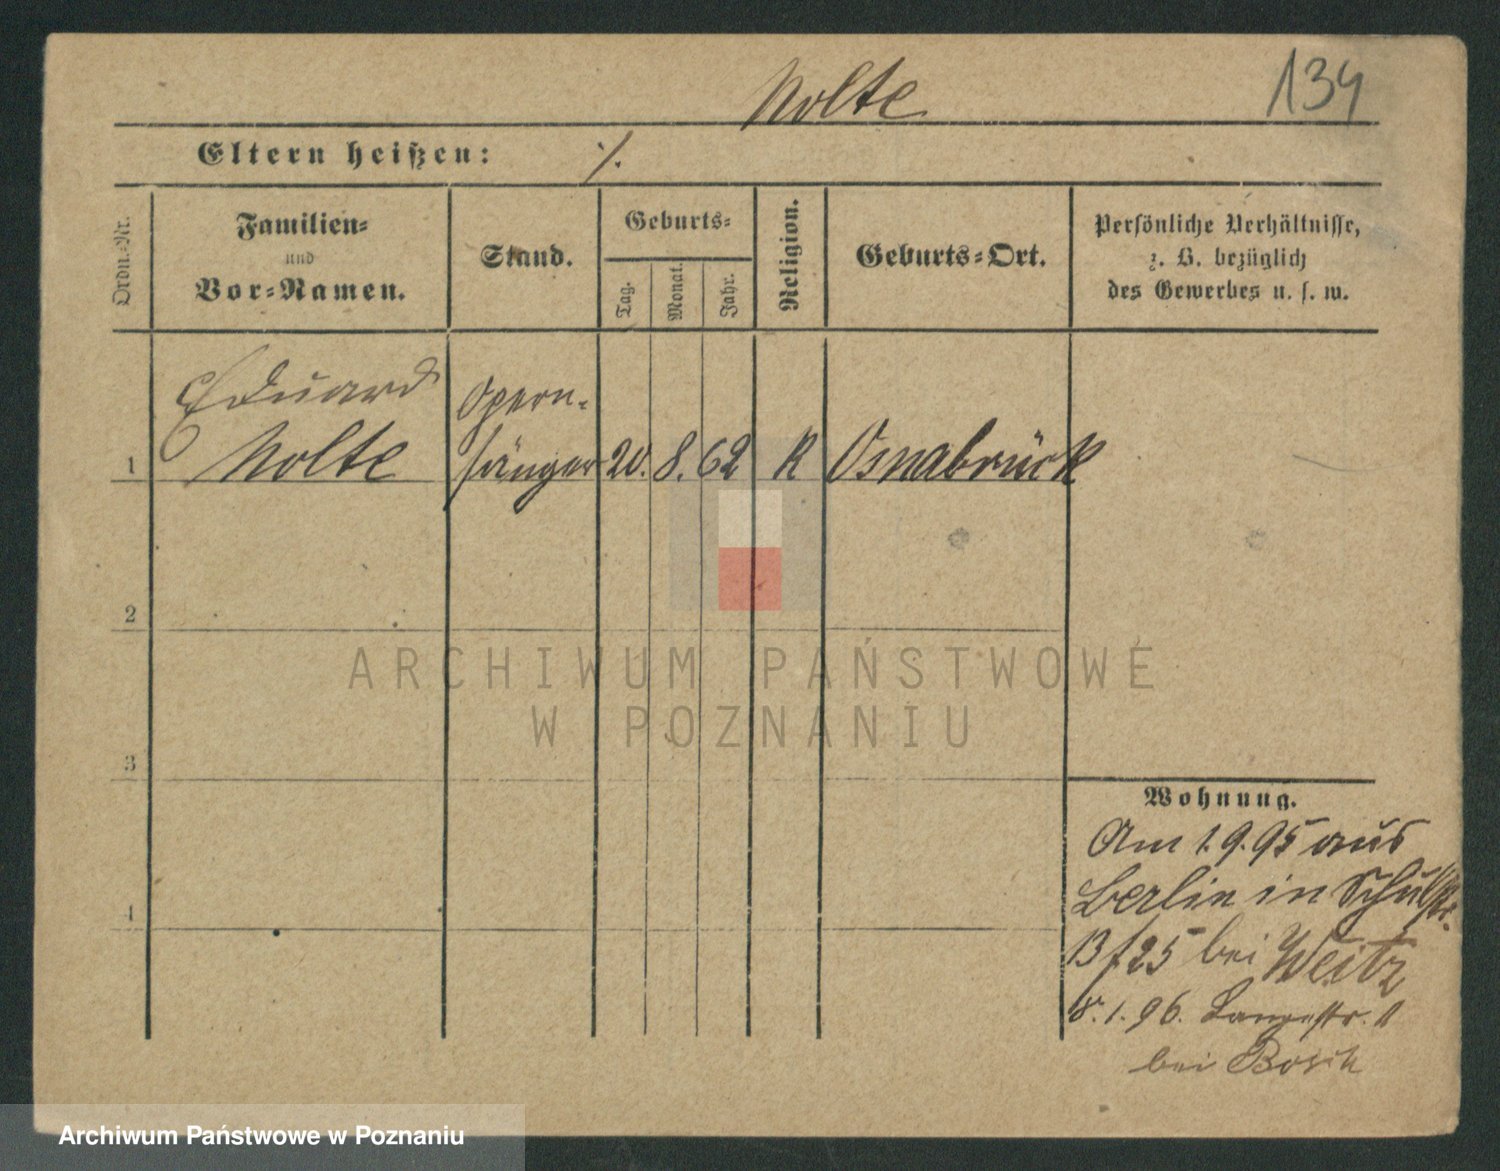 Nolte
134
Eltern heißen: ./.
Ordn.-Nr.
Familien-
und
Vor-Namen.
Stand.
Geburts-
Tag.
Monat.
Jahr.
Religion.
Geburts-Ort.
Persönliche Verhältnisse,
z. B. bezüglich
des Gewerbes u. s. w.
Eduard
Nolte
Opern-
sänger
1
20. 8. 62 K Osnabrück
2
ARCHIWUM PAŃSTWOWE
W POZNANIU
3
Wohnung.
Am 1.9.95 aus
Berlin in Schulstr.
13 f 25 bei Weitz
8.1.96. Langestr. 1
bei
4
Archiwum Państwowe w Poznaniu